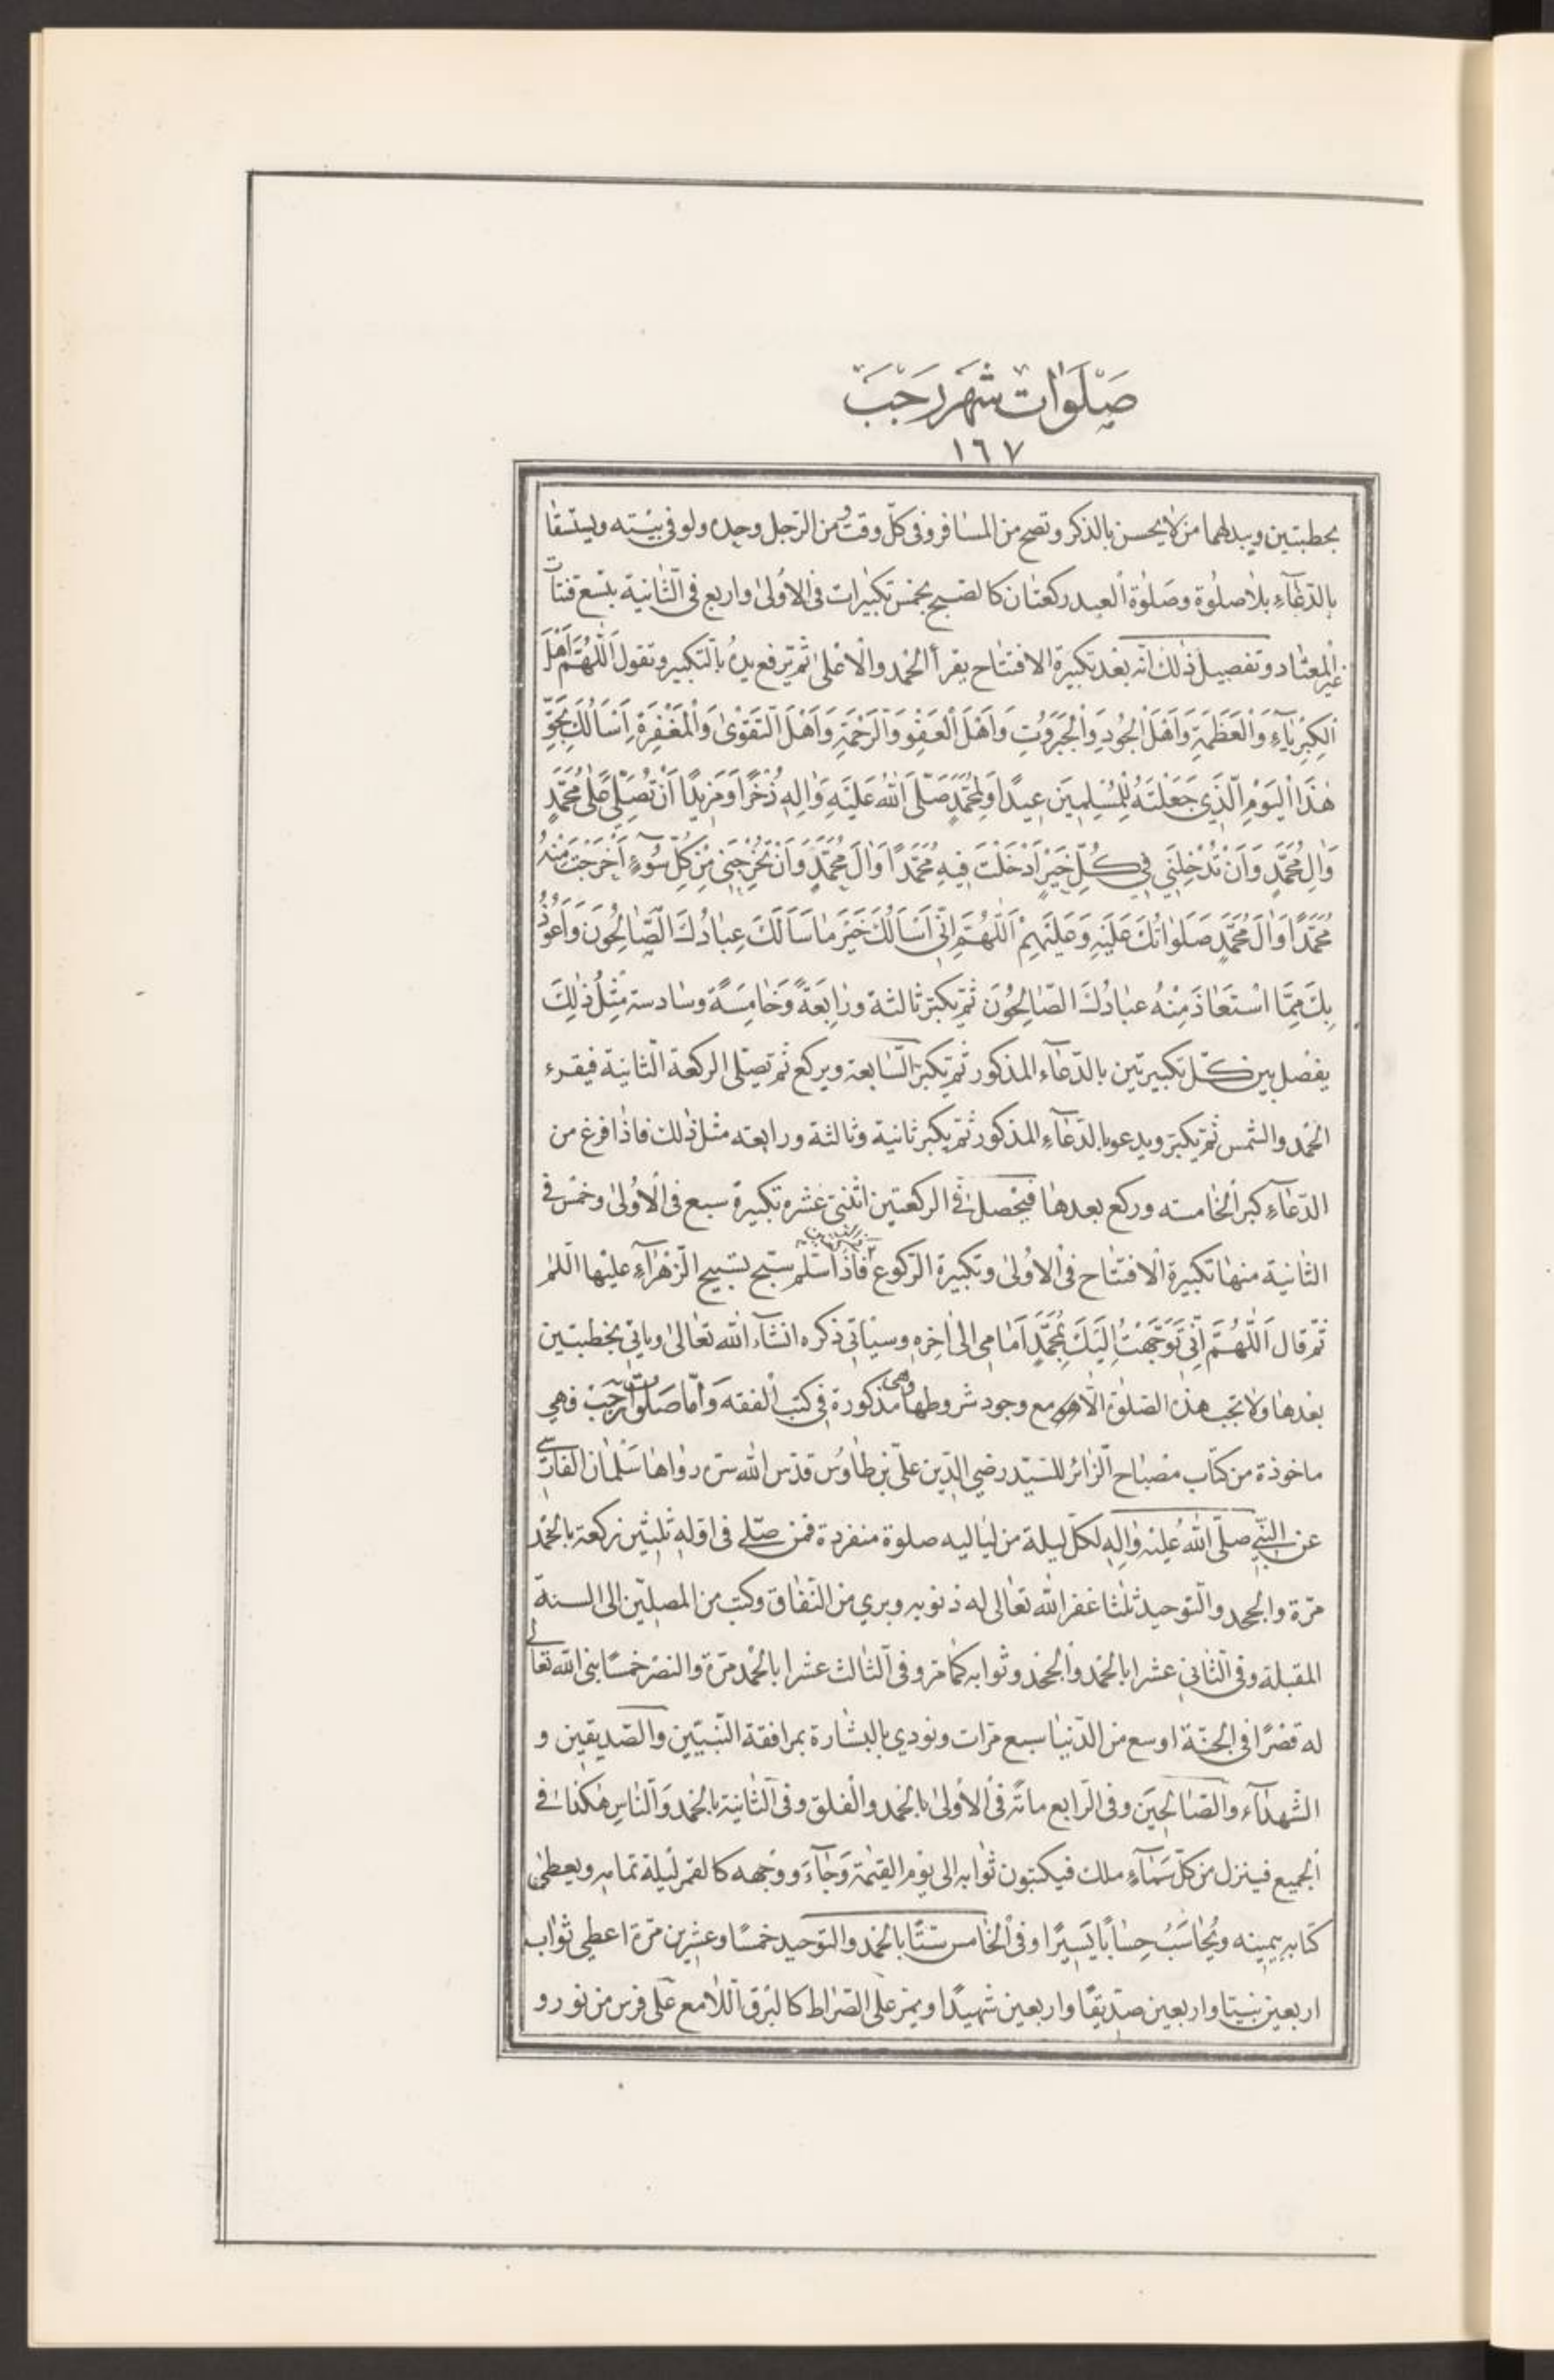 صَلَوٰات شَهْر رَجَبَ
١٦٧
بخطبتين ويبدلهما من لا يحسن بالذكر وتصح من المسٰافر وفى كلّ وقت ومن الرّجل وحده ولو فى بيته ويستسقٰا
بالدّعٰآءِ بلاٰ صلوٰة وصَلوٰة العيد ركعتٰان كالصّبح بخمس تكبيرٰات فى الاُولىٰ واربع فى الثّٰانية بتسع قنتٰات
غير المعتٰاد وتفصيل ذٰلك انّه بعْد تكبيرة الافتتٰاح يقرأ الحْمد والاَعْلىٰ ثمّ يرفع يدَهُ بالتّكبير وتقول اَللّٰهُمَّ اَهْلَ
اْلكِبْرِيٰآءِ وَالْعَظَمَةِ وَاَهْلَ الْجُودِ وَالْجَبَرُوتِ وَاَهْلَ الْعَفْوِ وَالرَّحْمَةِ وَاَهْلَ التَّقْوٰى وَالْمَغْفِرَةِ اَسْاَلُكَ بِحَقِّ
هٰذَا الْيَوْمِ الَّذِي جَعَلْتَهُ لِلْمُسْلِمِينَ عِيدًا وَلِمُحَمَّدٍ صَلَّى اللهُ عَلَيْهِ وَاٰلِهِ ذُخْرًا وَمَزِيدًا اَنْ تُصَلِّيَ عَلىٰ مُحَمَّدٍ
وَاٰلِ مُحَمَّدٍ وَاَنْ تُدْخِلَنِي فِي كُلِّ خَيْرٍ اَدْخَلْتَ فِيهِ مُحَمَّدًا وَاٰلَ مُحَمَّدٍ وَاَنْ تُخْرِجَنِي مِنْ كُلِّ سُوۤءٍ اَخْرَجْتَ مِنْهُ
مُحَمَّدًا وَاٰلَ مُحَمَّدٍ صَلَوٰاتُكَ عَلَيْهِ وَعَلَيْهِمْ اَللّٰهُمَّ اِنِّي اَسْاَلُكَ خَيْرَ مٰا سَاَلَكَ عِبٰادُكَ الصّٰالِحُونَ وَاَعُوذُ
بِكَ مِمَّا اسْتَعٰاذَ مِنْهُ عبٰادُكَ الصّٰالِحُونَ ثمّ يكبّر ثالثة ورٰابِعَةً وَخٰامِسَةً وسٰادسة مِثْلُ ذٰلِكَ
يفصُل بين كلّ تكبيرتين بالدّعٰآء المذكور ثمّ يكبّر السّٰابعة ويركع ثمّ تصلّى الركعة الثّانية فيقرء
الحَمْد والشّمس ثمّ يكبّر ويدعو بالدّعٰآءِ المذكور ثمّ يكبّر ثانية وثالثة ورابعه مثل ذٰلك فاذٰا فرغ من
الدّعٰآءِ كبر الخٰامسه وركع بعدهٰا فيْحصل فى الركعتين اثنتى عَشره تكبيرة سبع فى الاُولىٰ وخمْس فى
الثانية منهٰا تكبيرة الافتتٰاح فى الاُولىٰ وتكبيرة الرّكوع فاذٰا سلّم سبّح تسبيح الزّهْرٰآءِ عليْها السّلٰم
ثمّ قال اَللّٰهُمَّ اِنّي تَوَجَّهْتُ اِلَيْكَ بِمُحَمَّدٍ اَمٰامِي الىٰ اٰخِره وسيٰاتي ذكره انشٰآء الله تعٰالىٰ وياتي بخطبتين
بعْدهٰا ولا تجب هذه الصّلوٰة الّا مع وجود شروطهٰا وهى مذكورة في كتب الفقه وَاَمّا صَلَوٰات رَجَبْ فهي
ماخوذة من كتاب مصْبٰاح الزّٰائر للسّيّد رضي الدّين علىّ بن طٰاوُس قدّس الله سرّه روٰاهٰا سَلْمٰان الفارسى
عن النّبي صلّى اللهُ عليْه وٰاله لكلّ ليلة من ليٰاليه صلوة منفردة فمن صلّى في اوّله ثلثين ركعة بالحَمْد
مرّة والجحد والتّوحيد ثلثا غفر الله تعٰالى له ذنوبه وبري من النّفٰاق وكتب من المصلّين الى السنة
المقبلة وفى الثّاني عشرا بالحَمْد والجحْد وثوٰابه كمٰا مرّ وفى الثّالث عشرا بالحَمْد مرّة والنصْر خمسًا بنى الله تعٰالى
له قصْرًا فى الجنّة اوسع من الدّنيٰا سبع مرّات ونودي بالبشٰارة بمرافقة النّبيّين والصّديقين و
الشّهدٰآء والصّٰالحِيَن وفى الرّابع مائة فى الاُولىٰ بالحَمْد والفلق وفى الثّانية بالحَمْد وَالنّاس هٰكذٰا فى
الجميع فينزل من كلّ سَمٰآءٍ ملك فيكتبون ثوٰابه الى يوْم القيٰمة وَجٰآءَ ووَجْهه كالقمر ليْلة تمامه ويعطىٰ
كتابه بيمينه ويُحٰاسَبُ حِسٰابًا يَسِيرًا وفى الخٰامس ستّا بالحَمْد والتّوحيد خمسًا وعشرين مرّة اعطي ثوٰاب
اربعين نبيّا واربعين صدّيقًا واربعين شهيدًا ويمرّ على الصّرٰاط كالبْرق اللاٰمع عَلىٰ فرس من نور و